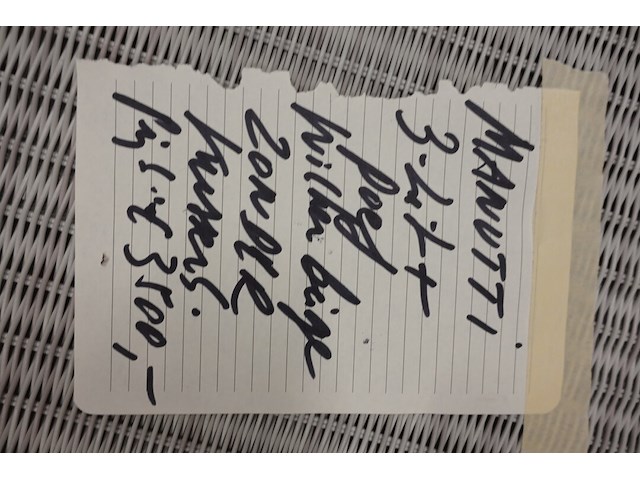 MANUTTi
3-zit +
poef
beige
ZONDER
kussens.
Prijs: € 3500,-